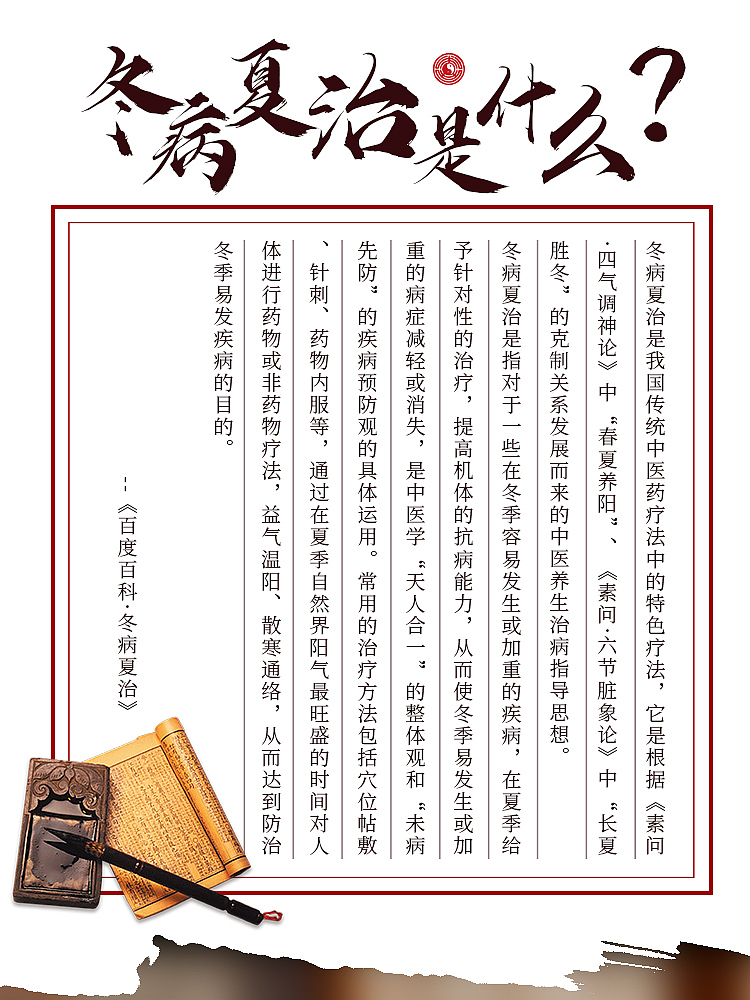 冬病夏治是什么?
冬病夏治是我国传统中医药疗法中的特色疗法，它是根据《素问
·四气调神论》中“春夏养阳”、《素问·六节脏象论》中“长夏
胜冬”的克制关系发展而来的中医养生治病指导思想。
冬病夏治是指对于一些在冬季容易发生或加重的疾病，在夏季给
予针对性的治疗，提高机体的抗病能力，从而使冬季易发生或加
重的病症减轻或消失，是中医学“天人合一”的整体观和“未病
先防”的疾病预防观的具体运用。常用的治疗方法包括穴位帖敷
、针刺、药物内服等，通过在夏季自然界阳气最旺盛的时间对人
体进行药物或非药物疗法，益气温阳、散寒通络，从而达到防治
冬季易发疾病的目的。
--《百度百科·冬病夏治》